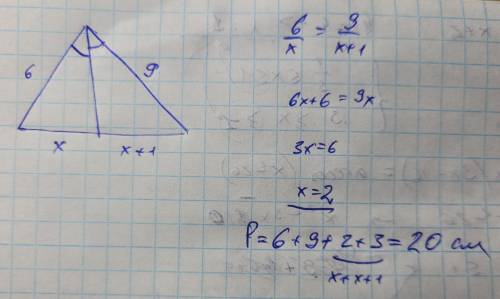 6
9
x
x+1
6/x = 9/x+1
6x+6 = 9x
3x=6
x=2
P=6+9+2+3=20 см
x+x+1